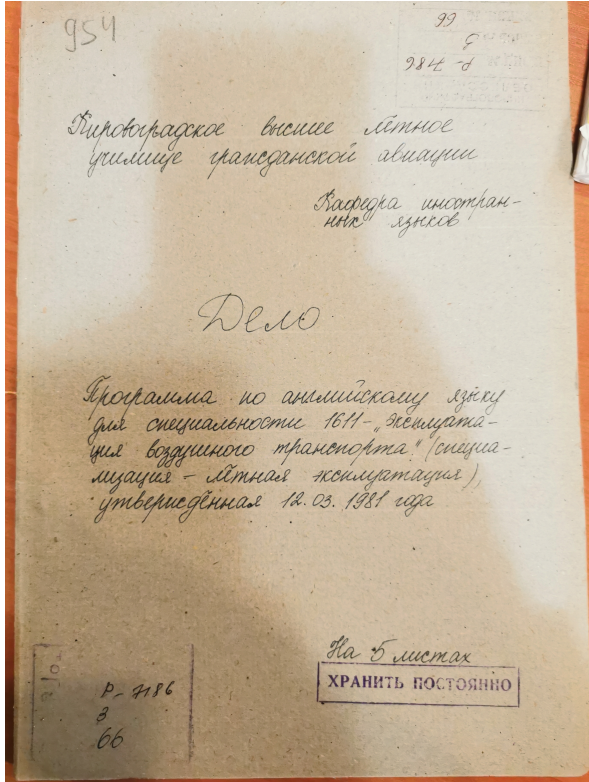 954
66
Р-7186
Кировоградское высшее лётное
училище гражданской авиации
Кафедра иностран-
ных языков
Дело
Программа по английскому языку
для специальности 1611-„Эксплуата-
ция воздушного транспорта" (специа-
лизация - лётная эксплуатация),
утверждённая 12.03.1981 года
На 5 листах
ХРАНИТЬ ПОСТОЯННО
Р-7186
3
66